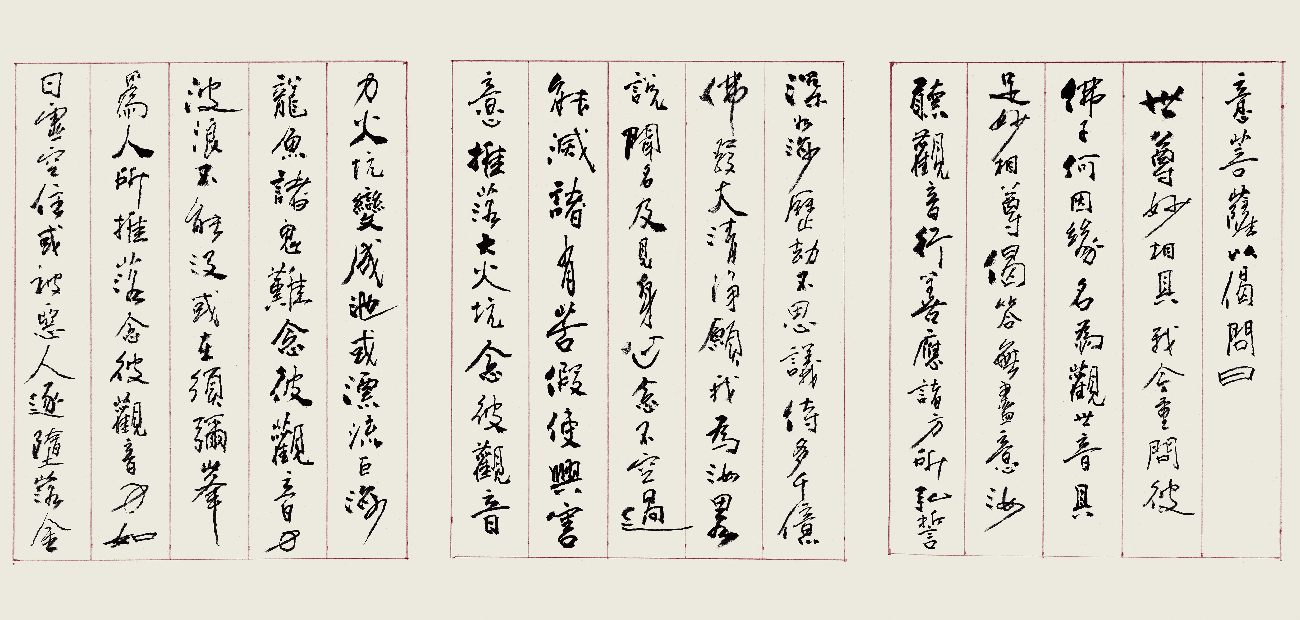 意菩薩以偈問曰
世尊妙相具我今重問彼
佛子何因緣名為觀世音具
足妙相尊偈答無盡意汝
聽觀音行善應諸方所弘誓
深如海歷劫不思議侍多千億
佛發大清淨願我為汝略
說聞名及見身心念不空過
能滅諸有苦假使興害
意推落大火坑念彼觀音
力火坑變成池或漂流巨海
龍魚諸鬼難念彼觀音力
波浪不能沒或在須彌峯
為人所推落念彼觀音力如
日虛空住或被惡人逐墮落金